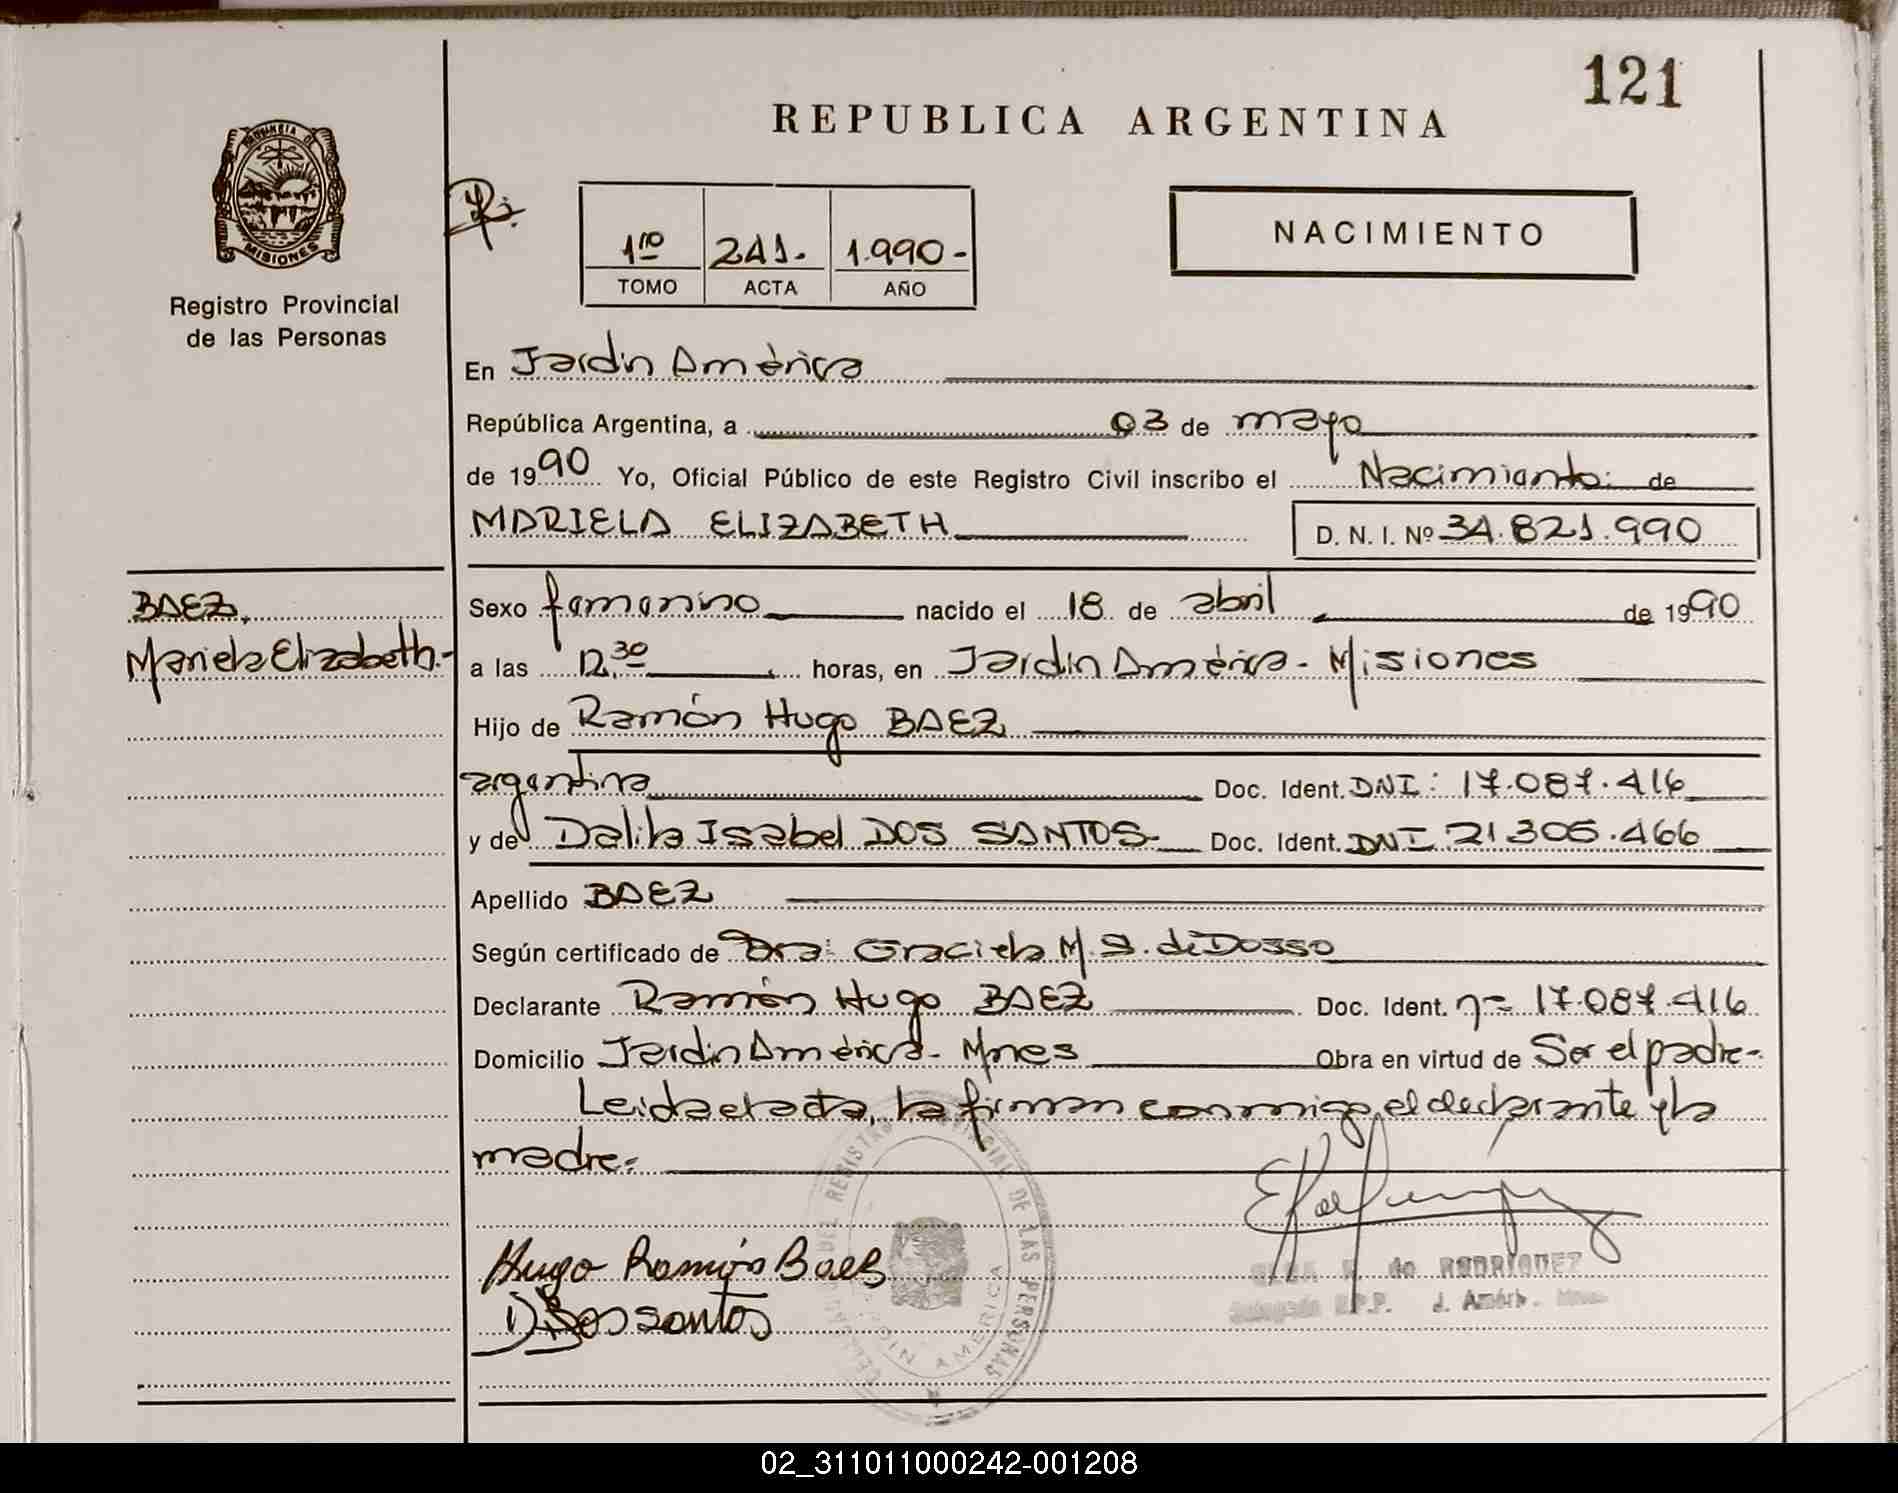 121
REPUBLICA ARGENTINA
PROVINCIA DE
MISIONES
Registro Provincial
de las Personas
1ro 241.- 1.990.-
TOMO ACTA AÑO
NACIMIENTO
En Jardín América
República Argentina, a 03 de mayo
de 1990 Yo, Oficial Público de este Registro Civil inscribo el Nacimiento: de
MARIELA ELIZABETH D. N. I. Nº 34.821.990
BAEZ,
Mariela Elizabeth.-
Sexo femenino nacido el 18 de abril de 1990
a las 12,30 horas, en Jardín América - Misiones
Hijo de Ramón Hugo BAEZ
argentina Doc. Ident. DNI: 17.087.416
y de Dalila Isabel DOS SANTOS- Doc. Ident. DNI 21.305.466
Apellido BAEZ
Según certificado de Dra: Graciela M. S. de Dosso
Declarante Ramón Hugo BAEZ Doc. Ident. nº 17.087.416
Domicilio Jardín América - Mnes Obra en virtud de Ser el padre-
Leída el acta, la firman conmigo el declarante y la
madre.-
Hugo Ramón Baes
D Dos santos
DEL REGISTRO PROVINCIAL DE LAS PERSONAS
JARDIN AMERICA
ELSA de RODRIGUEZ
Delegada R.P.P. J. Améric. Mnes
02_311011000242-001208